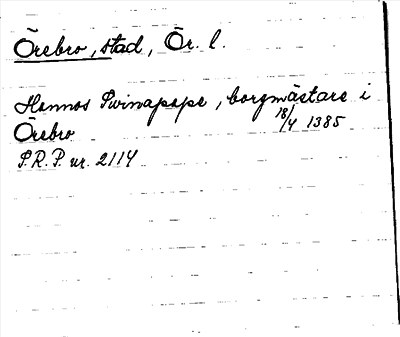 Örebro, stad, Ör. l.
Hannos Swinapape, borgmästare i
Örebro 18/4 1385
S.R.P. nr. 2114